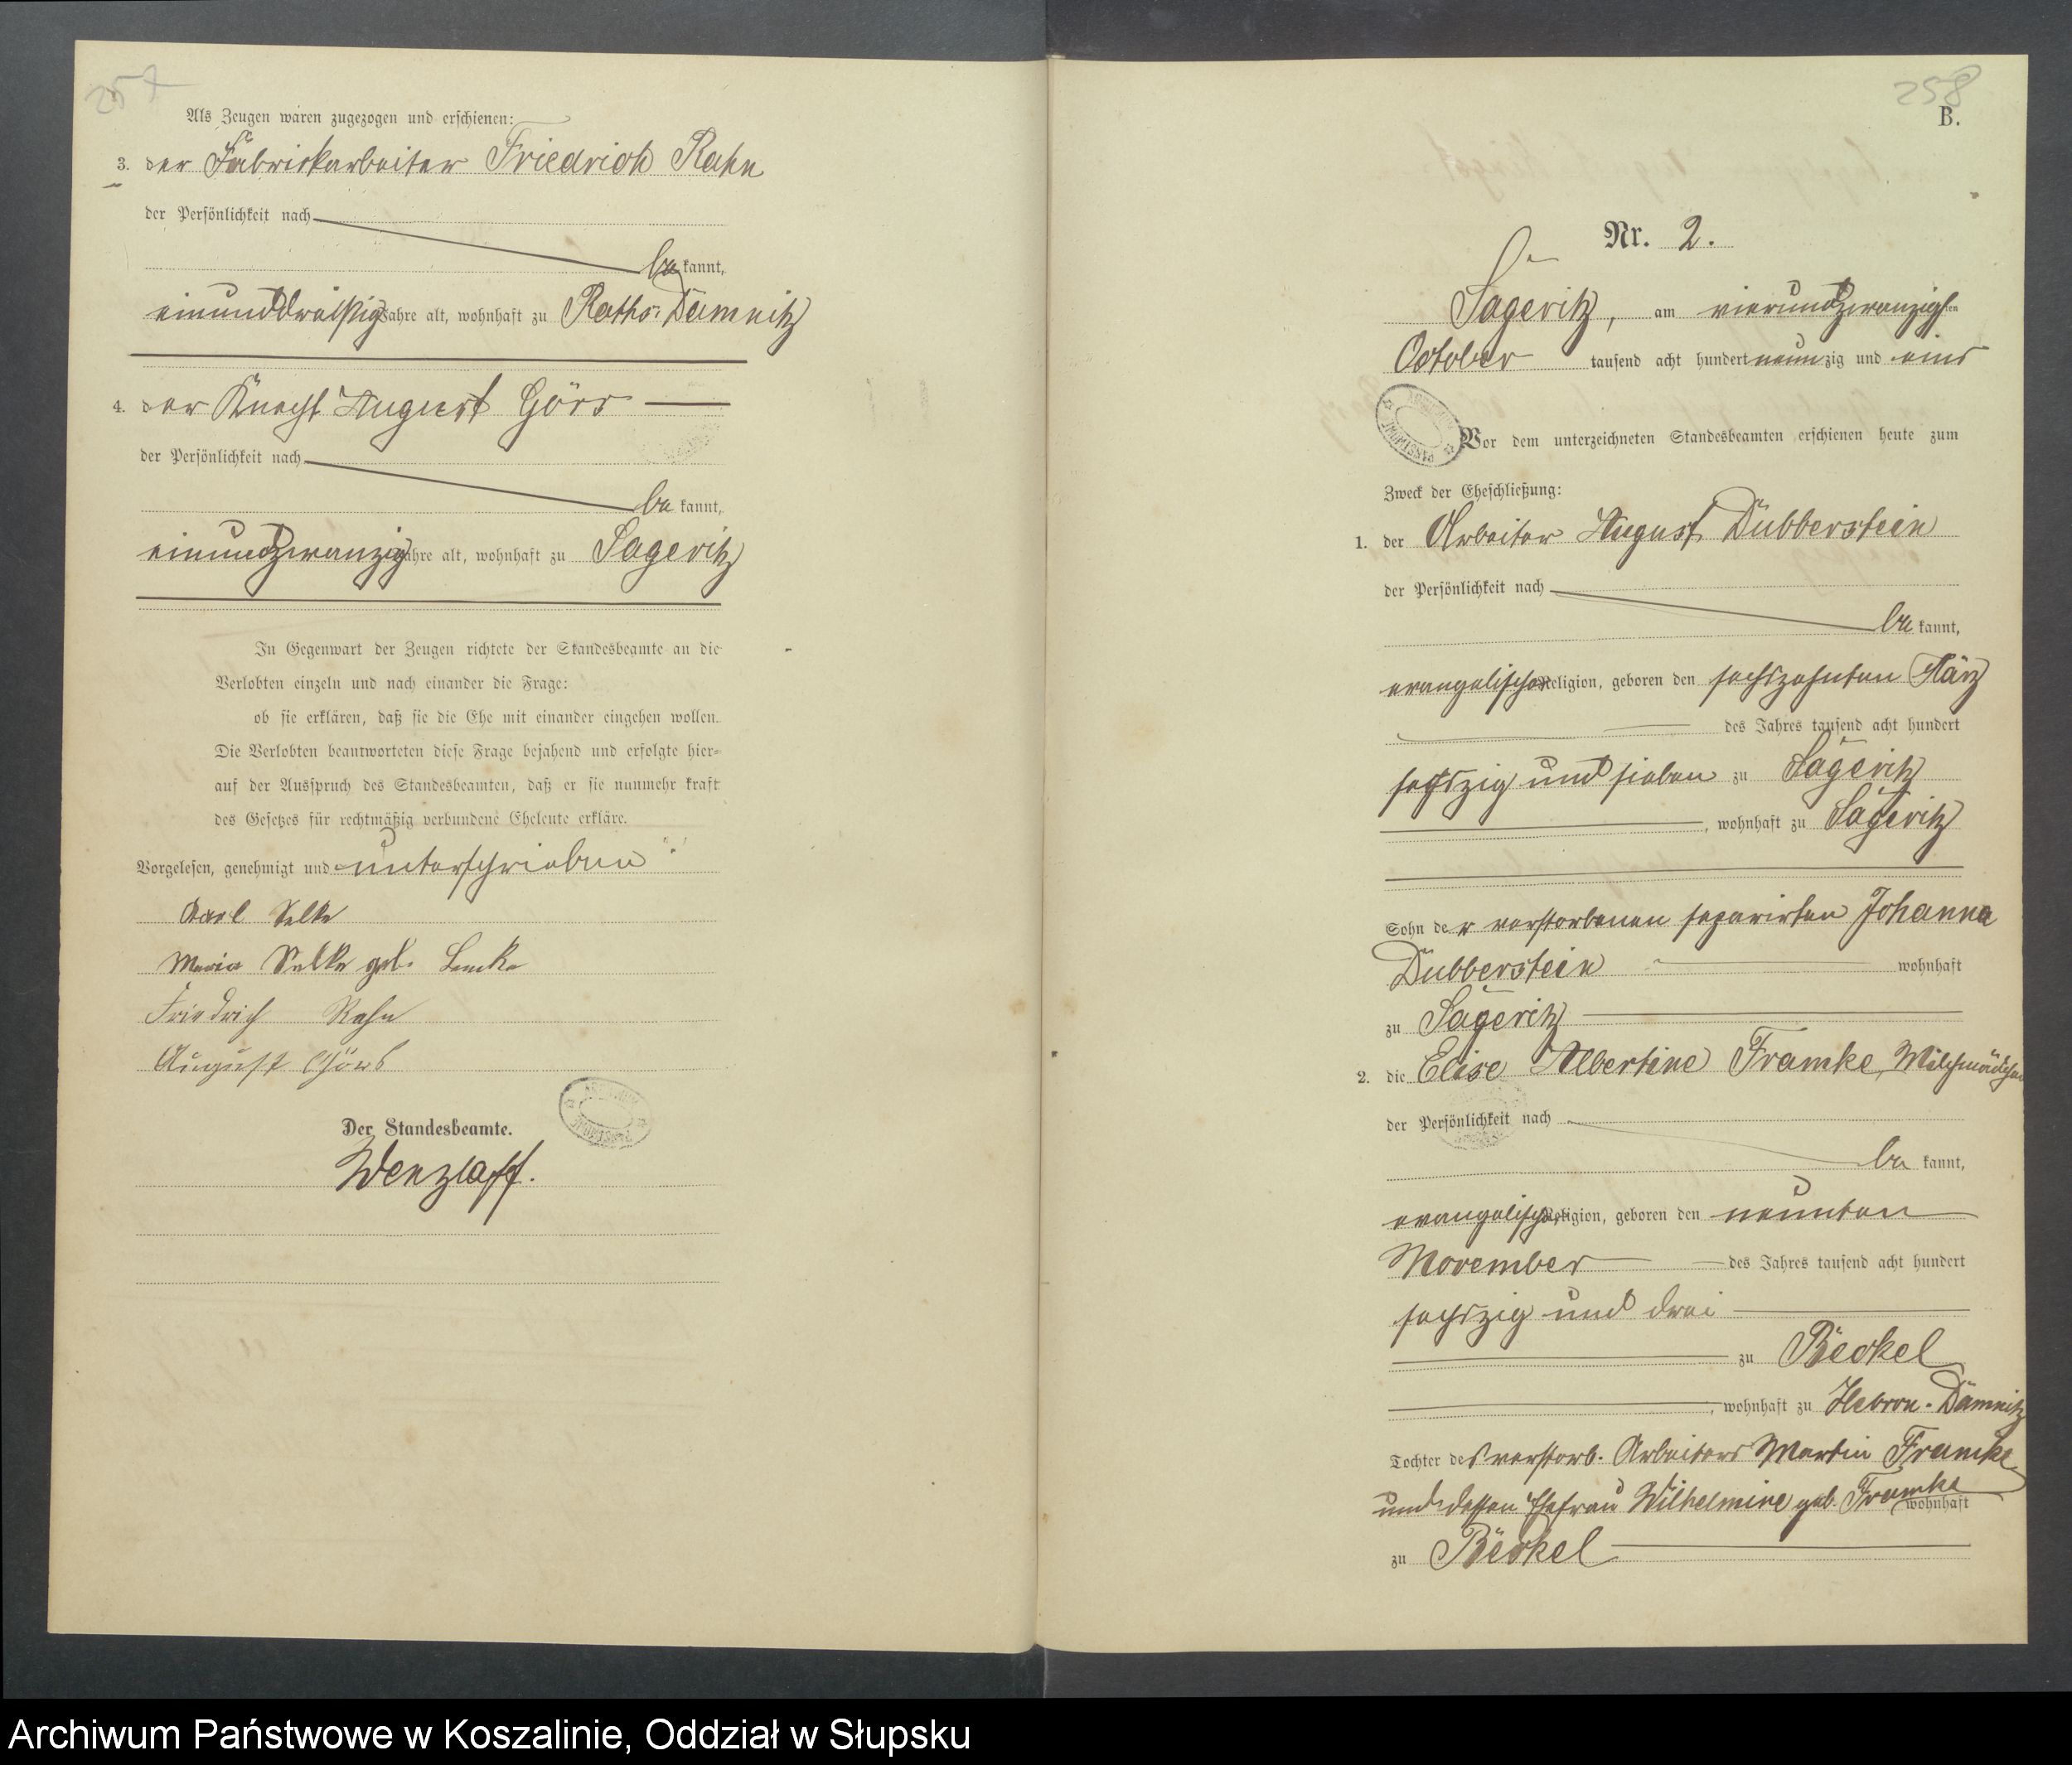 257
Als Zeugen waren zugezogen und erschienen:
3. der Fabrikarbeiter Friedrich Rahn
der Persönlichkeit nach
be kannt,
einunddreißig Jahre alt, wohnhaft zu Raths-Damnitz
4. der Knecht August Görs
der Persönlichkeit nach
be kannt,
einundzwanzig Jahre alt, wohnhaft zu Sageritz
In Gegenwart der Zeugen richtete der Standesbeamte an die
Verlobten einzeln und nach einander die Frage:
ob sie erklären, daß sie die Ehe mit einander eingehen wollen.
Die Verlobten beantworteten diese Frage bejahend und erfolgte hier=
auf der Ausspruch des Standesbeamten, daß er sie nunmehr kraft
des Gesetzes für rechtmäßig verbundene Eheleute erkläre.
Vorgelesen, genehmigt und unterschrieben
Karl Selke
Maria Selke geb. Lemke
Friedrich Rahn
August Görs
Der Standesbeamte.
Wenzlaff.
258
B.
Nr. 2.
Sageritz, am vierundzwanzigsten
October tausend acht hundert neunzig und eins
Vor dem unterzeichneten Standesbeamten erschienen heute zum
Zweck der Eheschließung:
1. der Arbeiter August Dubberstein
der Persönlichkeit nach
be kannt,
evangelischer Religion, geboren den sechszehnten März
des Jahres tausend acht hundert
sechszig und sieben zu Sageritz
, wohnhaft zu Sageritz
Sohn der verstorbenen separirten Johanna
Dubberstein wohnhaft
zu Sageritz
2. die Elise Albertine Framke, Milchmädchen
der Persönlichkeit nach
be kannt,
evangelischer Religion, geboren den neunten
November des Jahres tausend acht hundert
sechszig und drei
zu Beckel
, wohnhaft zu Hebron-Damnitz
Tochter des verstorb. Arbeiters Martin Framke
und dessen Ehefrau Wilhelmine geb. Framke wohnhaft
zu Beckel
Archiwum Państwowe w Koszalinie, Oddział w Słupsku